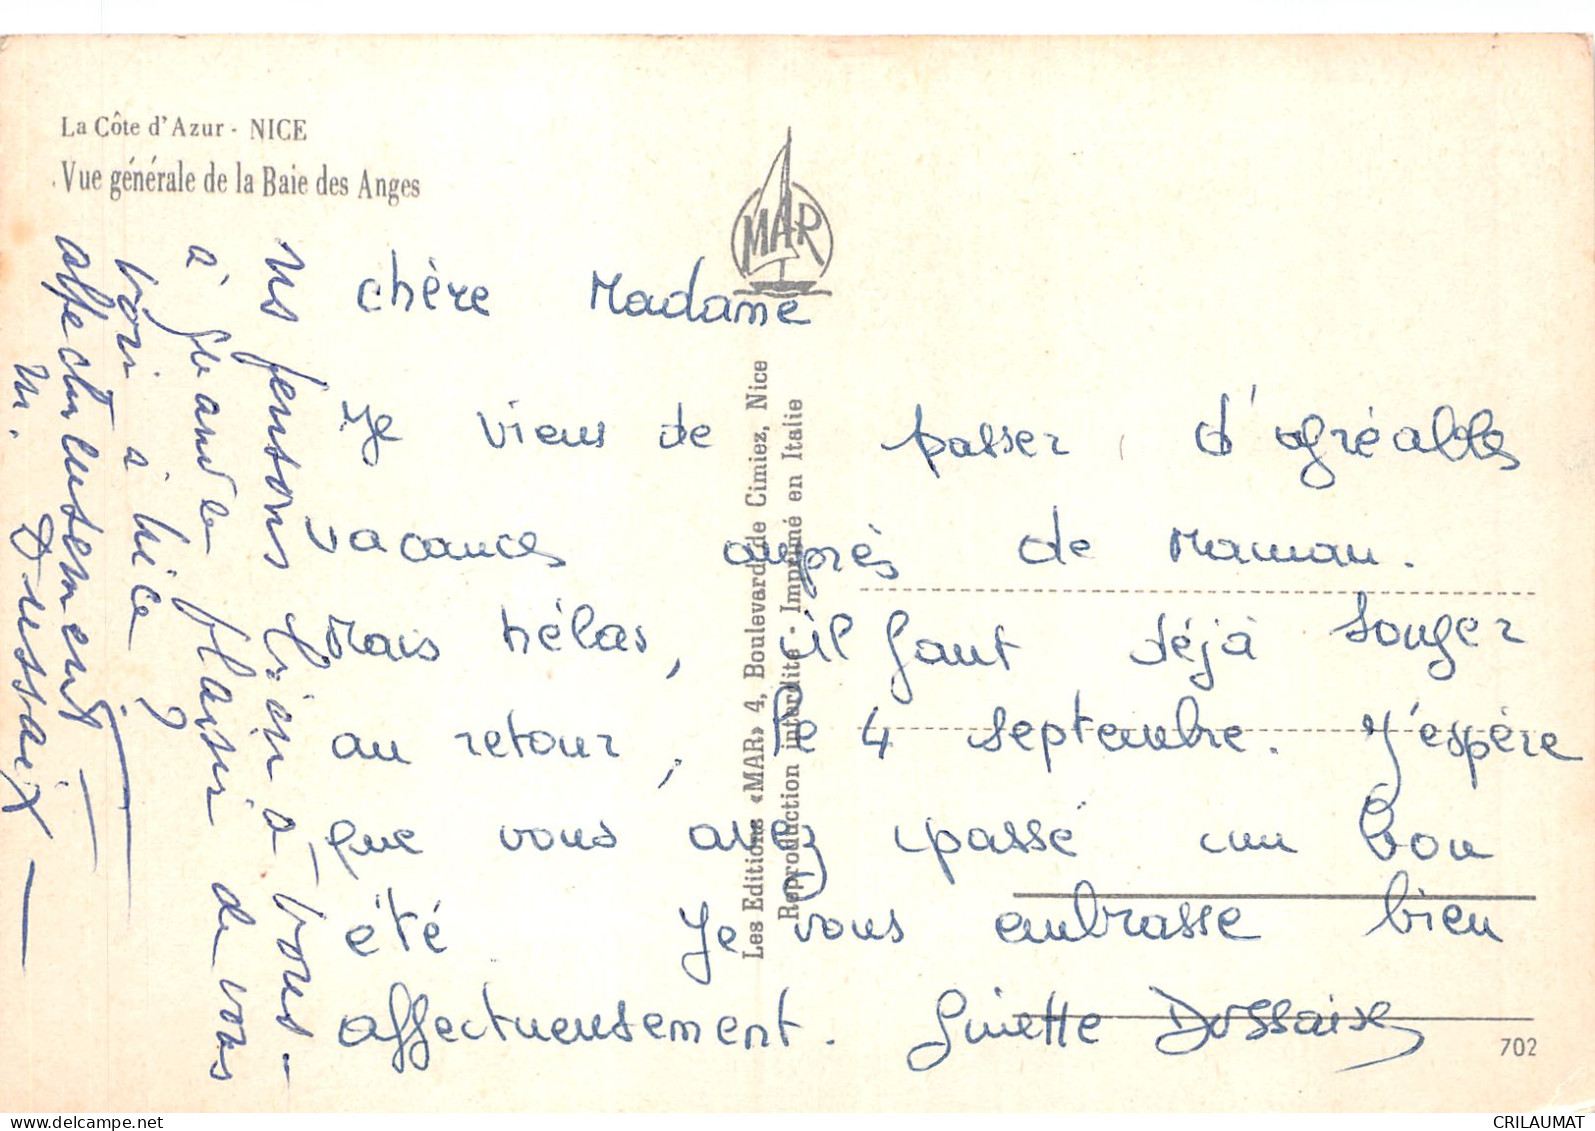 La Côte d'Azur - NICE
Vue générale de la Baie des Anges
MAR
chère Madame
Je viens de passer d'agréables
vacances auprès de Maman.
Mais hélas, il faut déjà songer
au retour, le 4 septembre. J'espère
que vous avez passé un bon
été Je vous embrasse bien
affectueusement. Ginette Dussaix
ns pensons bien à vous -
à quand le plaisir de vous
voir à Nice ?
affectueusement
M. Dussaix -
Les Editions «MAR» 4, Boulevard de Cimiez, Nice
Reproduction interdite - Imprimé en Italie
702
delcampe.net
CRILAUMAT